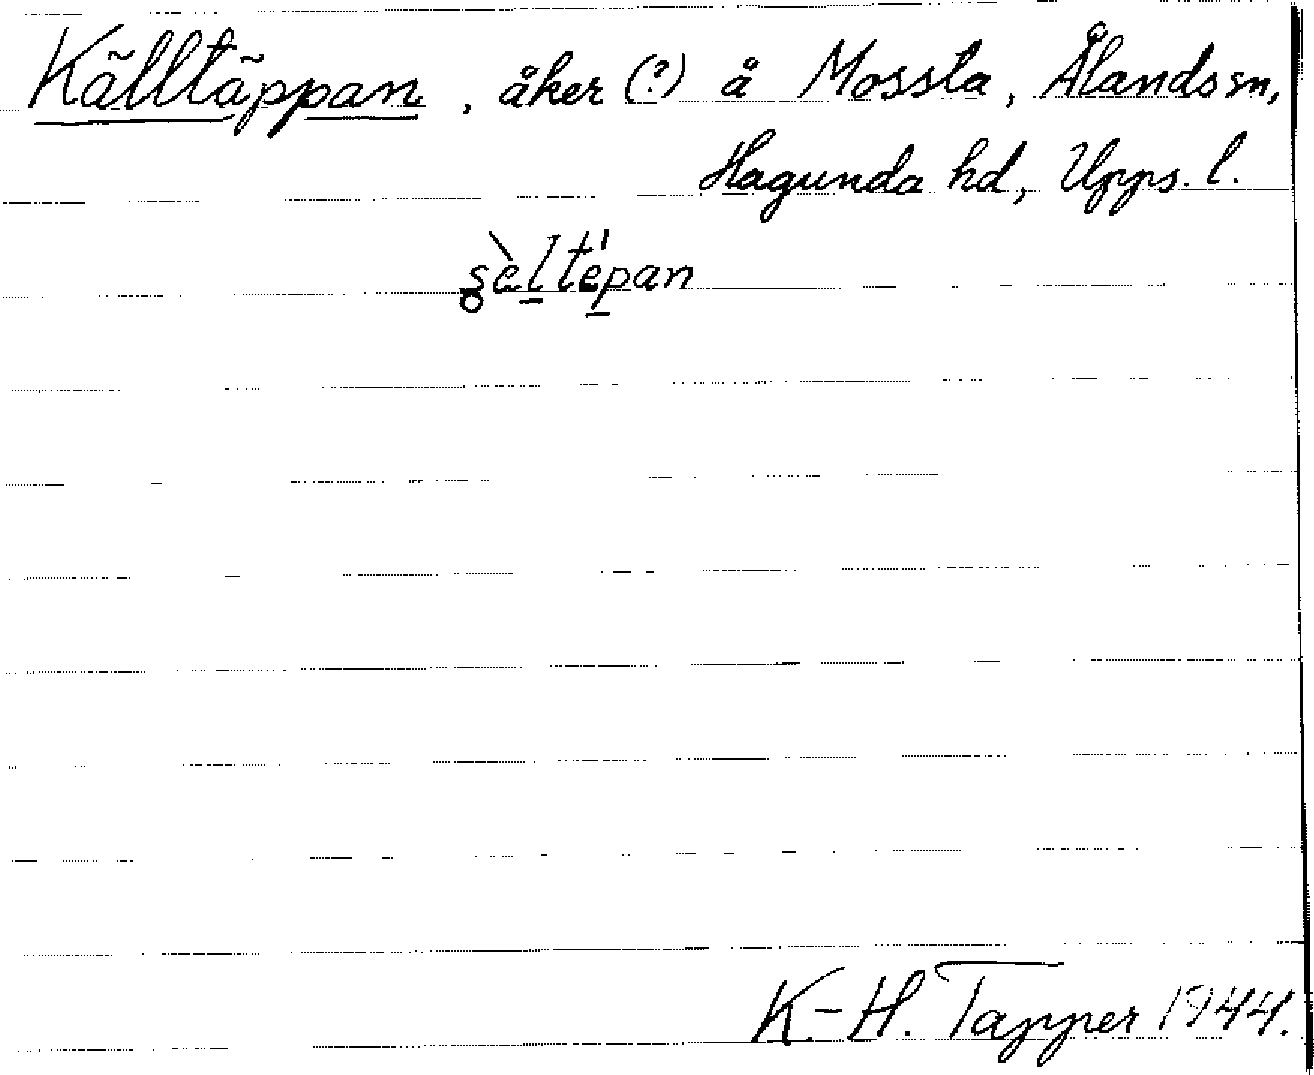 Källtäppan, åker (?) å Mossta, Ålands sn,
Hagunda hd, Upps. l.
şèltépan
K.-H. Tapper 1944.